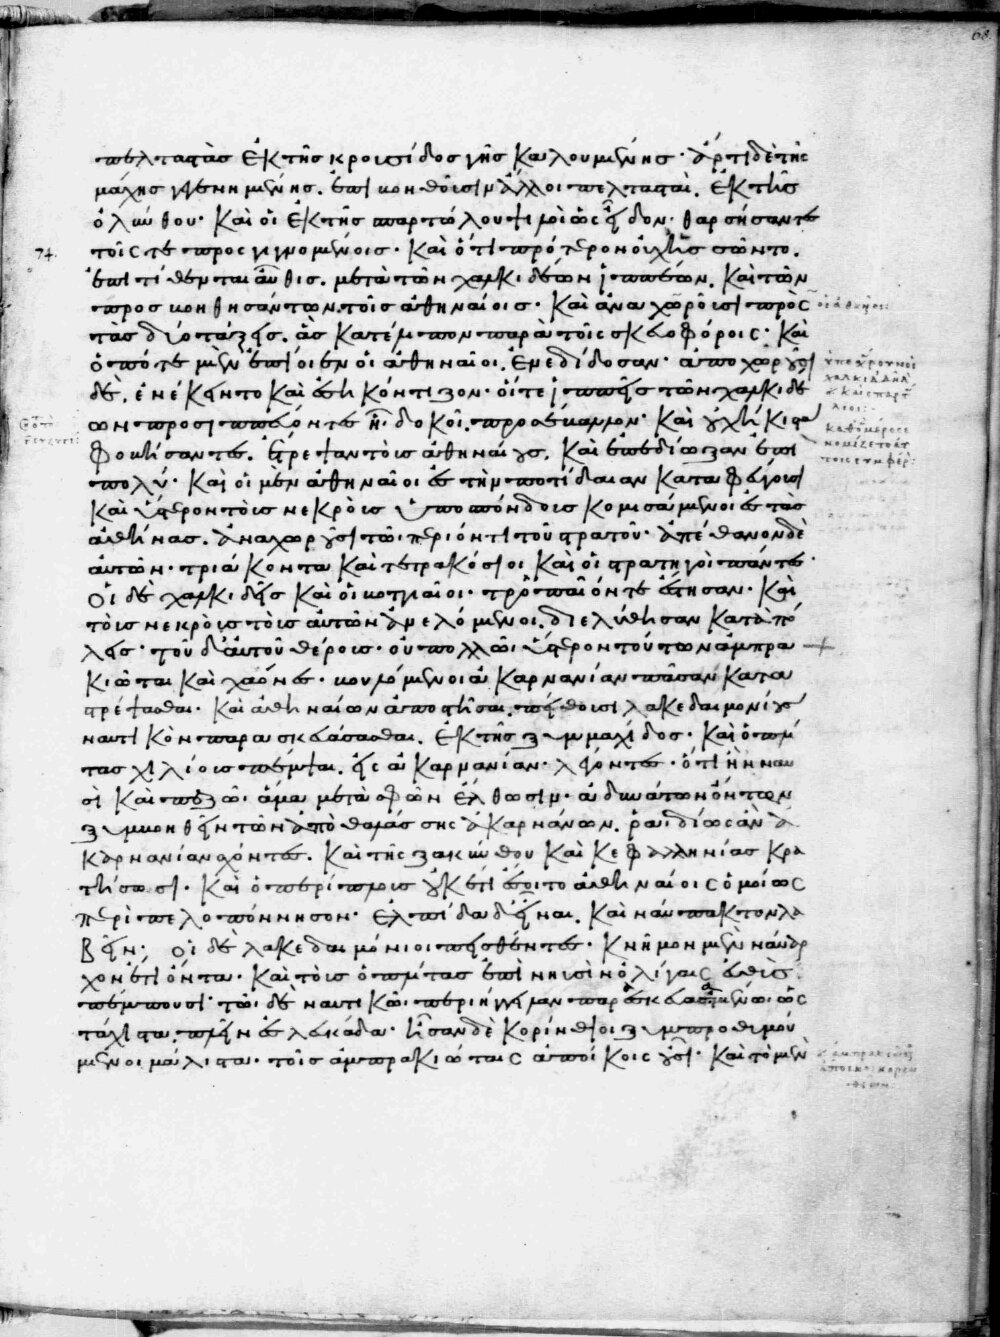 68
πελταστὰς ἐκ τῆς κρουσίδος γῆς καλουμένης· ἄρτι δὲ τῆς
μάχης γεγενημένης. ἐπιβοηθοῦσιν ἄλλοι πελτασταὶ. ἐκ τῆς
ὀλύνθου· καὶ οἱ ἐκ τῆς σπαρτώλου ψιλοὶ ὡς εἶδον· θαρσήσαντες
74. τοῖς τε προσγιγνομένοις· καὶ ὅτι πρότερον οὐχ ἥσσηντο.
ἐπιτίθενται αὖθις. μετὰ τῶν χαλκιδέων ἱππέων. καὶ τῶν
προσβοηθησάντων. τοῖς ἀθηναίοις· καὶ ἀναχωροῦσι πρὸς
τὰς δύο τάξεις. ἃς κατέλιπον παρὰ τοῖς σκευοφόροις· καὶ
ὁπότε μὲν ἐπίοιεν οἱ ἀθηναῖοι. ἐνεδίδοσαν· ἀποχωροῦσι
δὲ. ἐνέκειντο καὶ ἐσηκόντιζον· οἵ τε ἱππῆς τῶν χαλκιδέ
ων προσιππεύοντες ἧι δοκοῖ. προσέβαλλον· καὶ οὐχ ἥκιστα
φοβήσαντες. ἔτρεψαν τοὺς ἀθηναίους. καὶ ἐπεδίωξαν ἐπὶ
πολύ· καὶ οἱ μὲν ἀθηναῖοι ἐς τὴν ποτίδαιαν καταφεύγουσι
καὶ ὕστερον τοὺς νεκροὺς ὑποσπόνδους κομισάμενοι ἐς τὰς
ἀθήνας. ἀναχωροῦσι τῶι περιόντι τοῦ στρατοῦ· ἀπέθανον δὲ
αὐτῶν· τριάκοντα καὶ τετρακόσιοι καὶ οἱ στρατηγοὶ πάντες·
οἱ δὲ χαλκιδῆς καὶ οἱ βοττιαῖοι· τροπαῖόν τε ἔστησαν· καὶ
τοὺς νεκροὺς τοὺς αὑτῶν ἀνελόμενοι. διελύθησαν κατὰ πό
λεις· τοῦ δ' αὐτοῦ θέρους· οὐ πολλῶι ὕστερον τούτων ἀμπρα
κιῶται καὶ χάονες. βουλόμενοι ἀκαρνανίαν πᾶσαν κατα
στρέψασθαι· καὶ ἀθηναίων ἀποστῆσαι. πείθουσι λακεδαιμονίους
ναυτικόν παρασκευάσασθαι. ἐκ τῆς ξυμμαχίδος· καὶ ὁπλί
τας χιλίους πέμψαι. ἐς ἀκαρνανίαν· λέγοντες· ὅτι ἢν ναυ
σὶ καὶ πεζῶι ἅμα μετὰ σφῶν ἔλθωσιν· ἀδυνάτων ὄντων
ξυμβοηθεῖν τῶν ἀπὸ θαλάσσης ἀκαρνάνων. ῥαιδίως ἂν ἀ
καρνανίαν σχόντες. καὶ τῆς ζακύνθου καὶ κεφαλληνίας κρα
τήσωσι. καὶ ὁ περίπλους οὐκέτι ἔσοιτο ἀθηναίοις ὁμοίως
περὶ πελοπόννησον· ἐλπίδα δ' εἶναι. καὶ ναύπακτον λα
βεῖν· οἱ δὲ λακεδαιμόνιοι πεισθέντες· κνῆμον μὲν ναύαρ
χον ἔτι ὄντα· καὶ τοὺς ὁπλίτας ἐπὶ ναυσὶν ὀλίγαις εὐθὺς
πέμπουσι· τῶι δὲ ναυτικῶι περιήγγειλαν παρασκευασαμένωι ὡς
τάχιστα. πλεῖν ἐς λευκάδα· ἦσαν δὲ κορίνθιοι ξυμπροθυμού
μενοι μάλιστα· τοῖς ἀμπρακιώταις ἀποίκοις οὖσι· καὶ τὸ μὲν